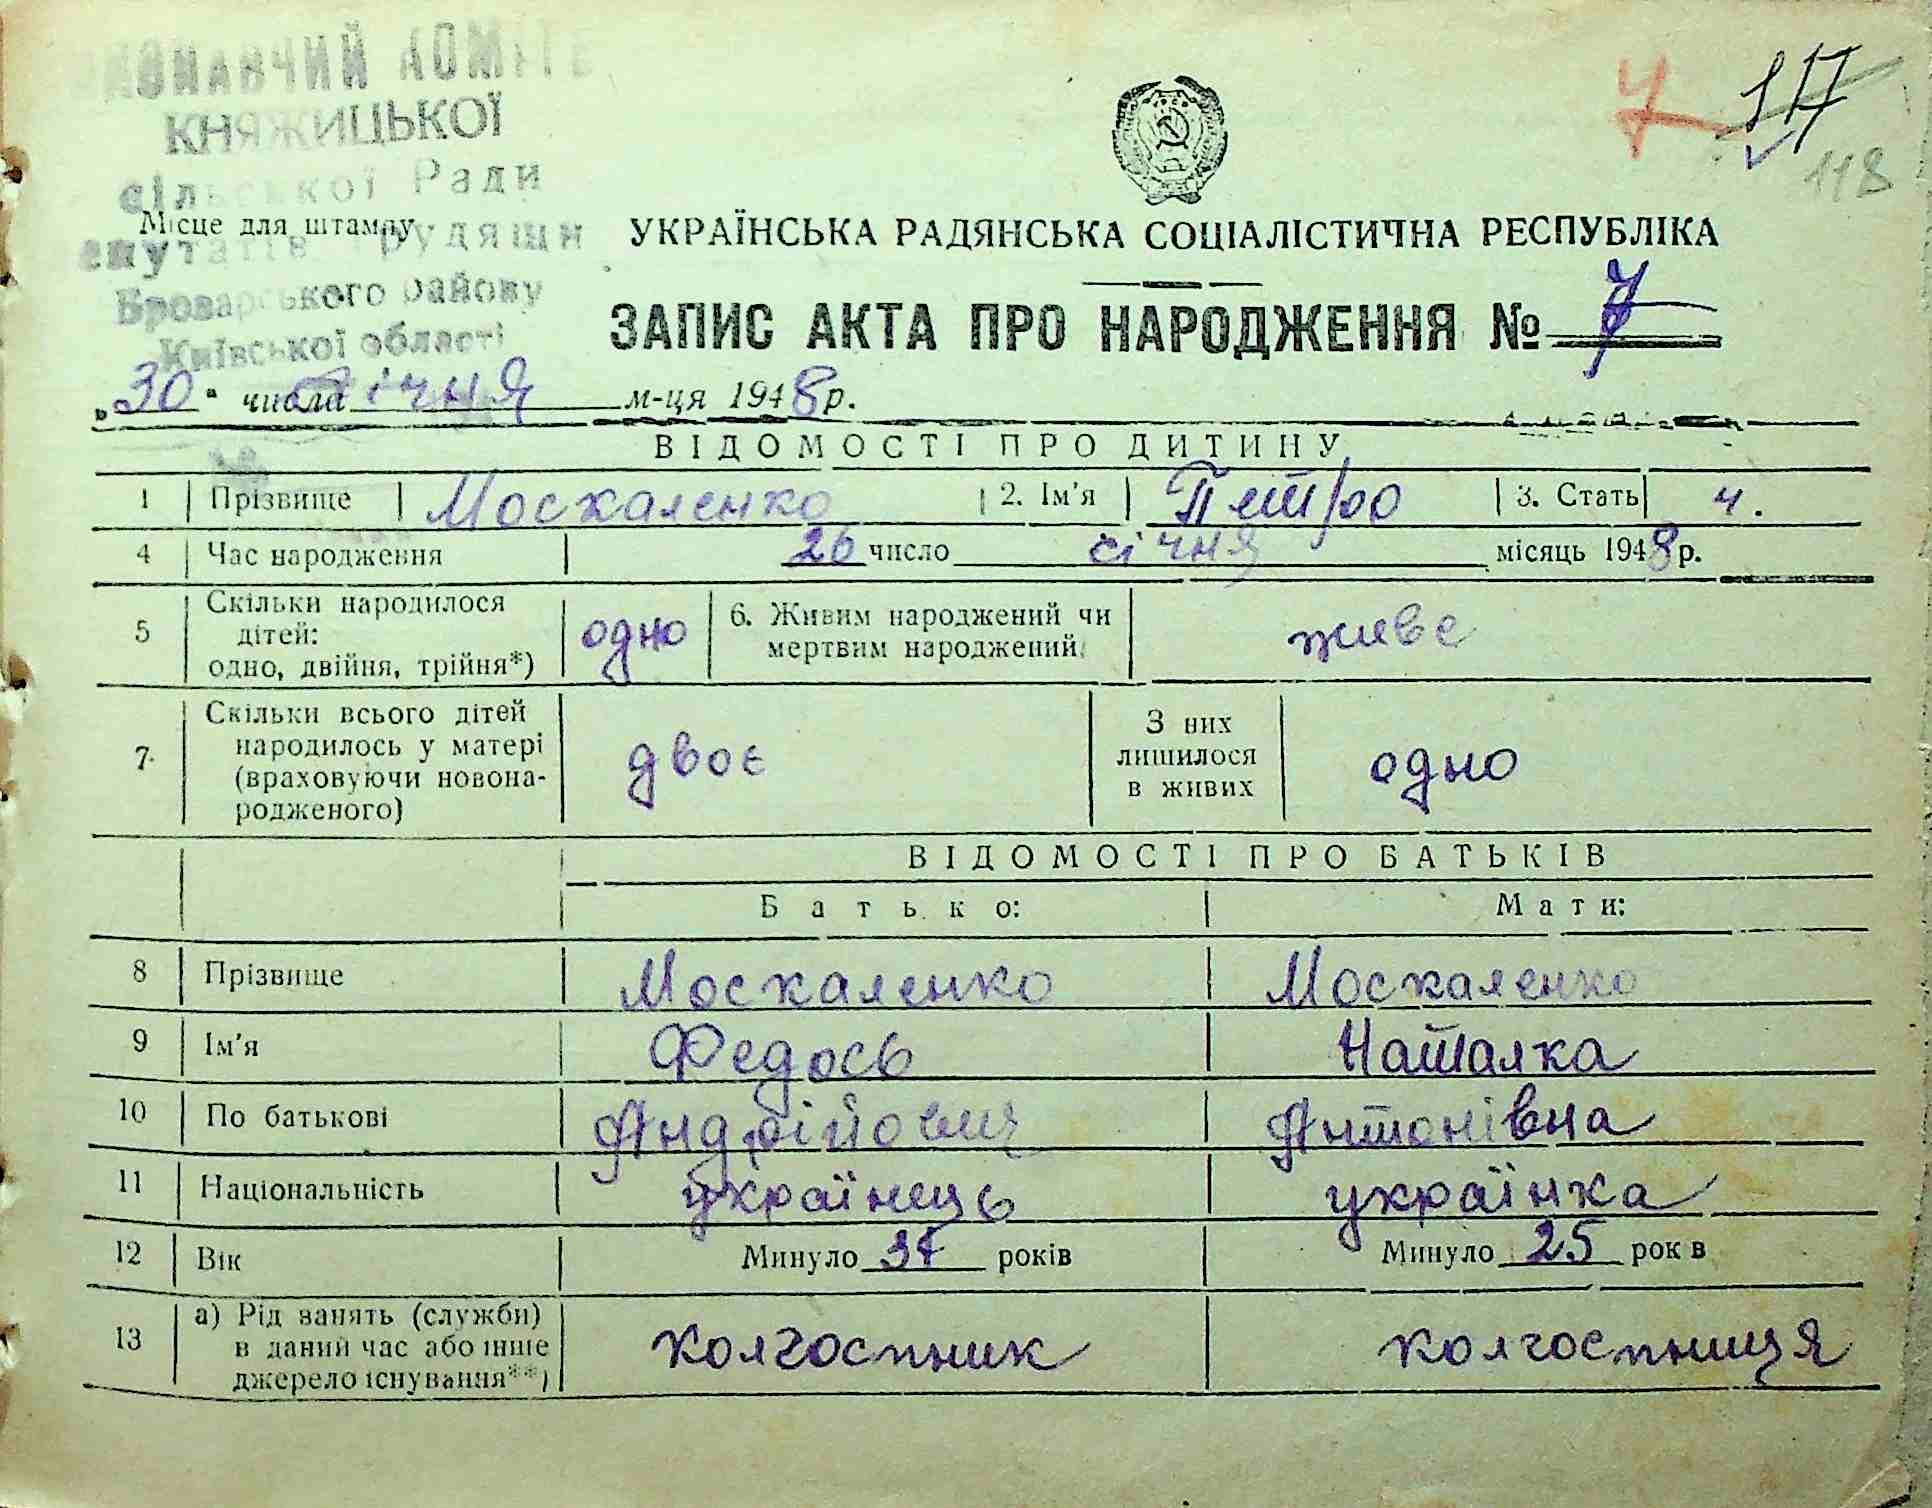 ВИКОНАВЧИЙ КОМІТЕТ
КНЯЖИЦЬКОЇ
сільської Ради
депутатів трудящих
Броварського району
Київської області
7 117
118
Місце для штампу
УКРАЇНСЬКА РАДЯНСЬКА СОЦІАЛІСТИЧНА РЕСПУБЛІКА
ЗАПИС АКТА ПРО НАРОДЖЕННЯ № 7
„30“ числа січня м-ця 1948 р.
ВІДОМОСТІ ПРО ДИТИНУ
1 Прізвище Москаленко 2. Ім'я Петро 3. Стать ч.
4 Час народження 26 число січня місяць 1948 р.
5 Скільки народилося дітей: одно, двійня, трійня*) одно 6. Живим народжений чи мертвим народжений живе
7 Скільки всього дітей народилось у матері (враховуючи новонародженого) двоє З них лишилося в живих одно
ВІДОМОСТІ ПРО БАТЬКІВ
Батько: Мати:
8 Прізвище Москаленко Москаленко
9 Ім'я Федось Наталка
10 По батькові Андрійович Антонівна
11 Національність українець українка
12 Вік Минуло 37 років Минуло 25 рок в
13 а) Рід занять (служби) в даний час або інше джерело існування**) колгоспник колгоспниця